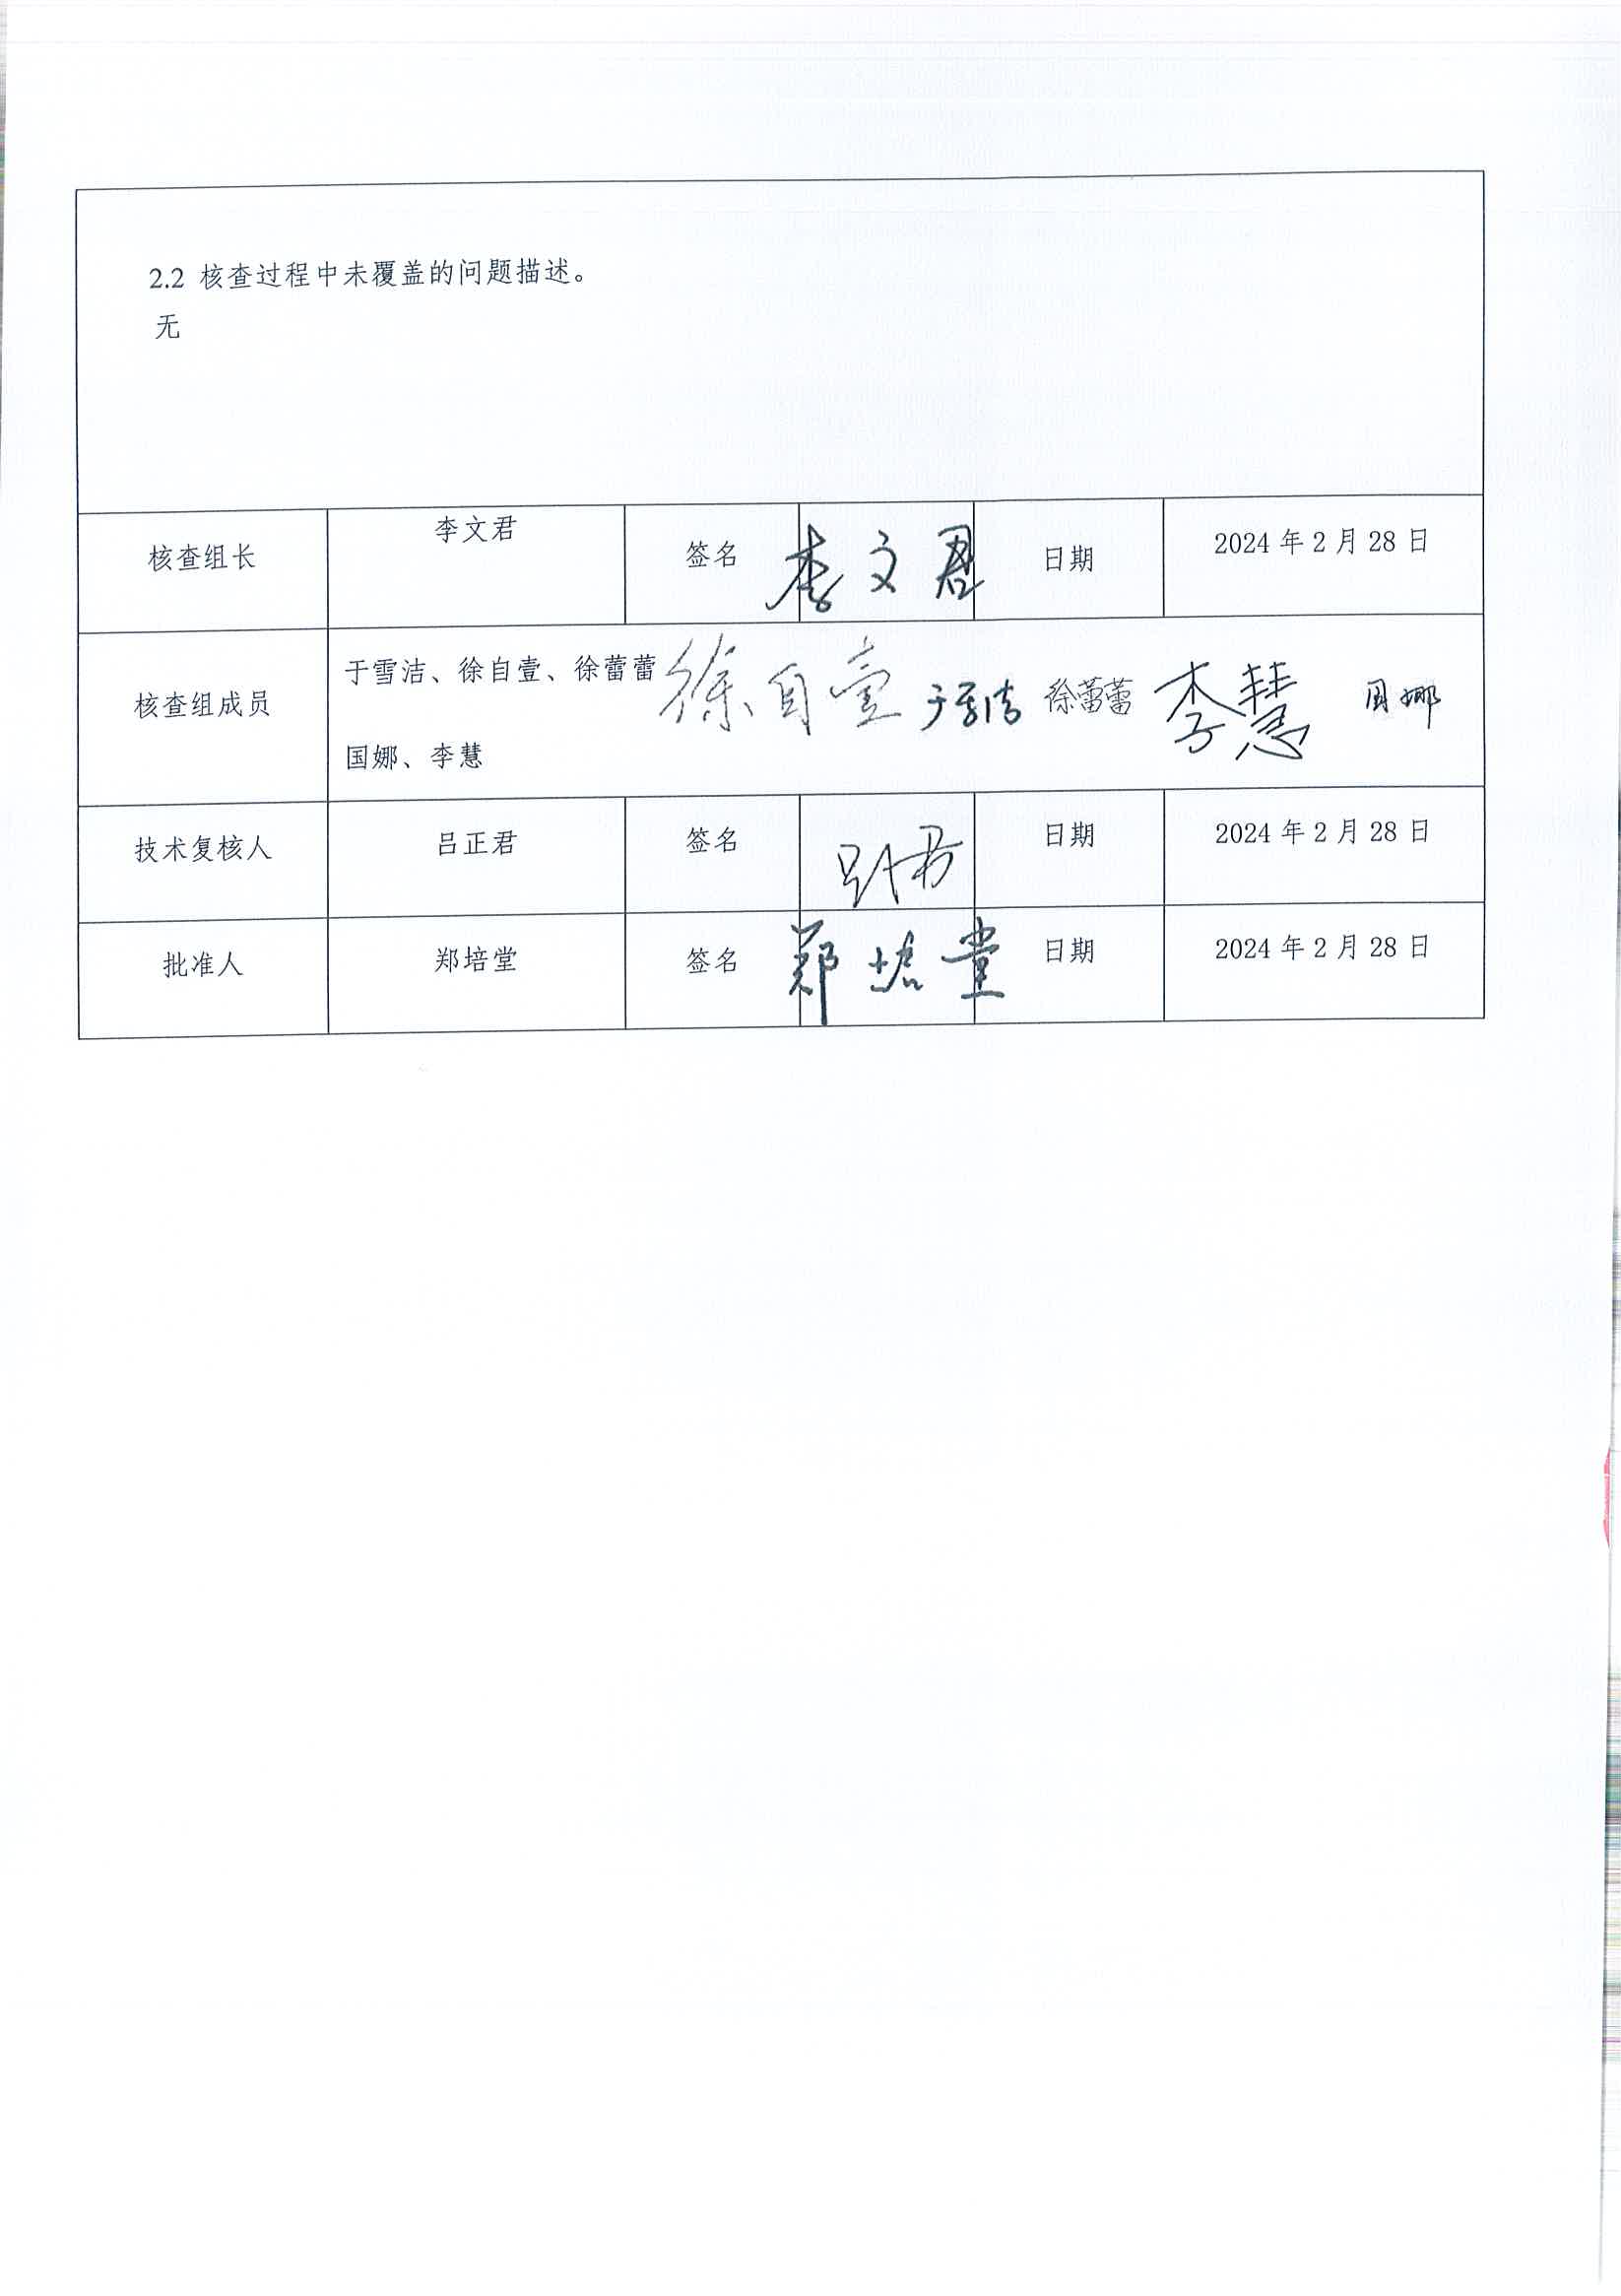 2.2 核查过程中未覆盖的问题描述。
无
核查组长 李文君 签名 李文君 日期 2024 年 2 月 28 日
核查组成员 于雪洁、徐自壹、徐蕾蕾 徐自壹 于雪洁 徐蕾蕾 李慧 国娜
国娜、李慧
技术复核人 吕正君 签名 日期 2024 年 2 月 28 日
批准人 郑培堂 签名 郑培堂 日期 2024 年 2 月 28 日